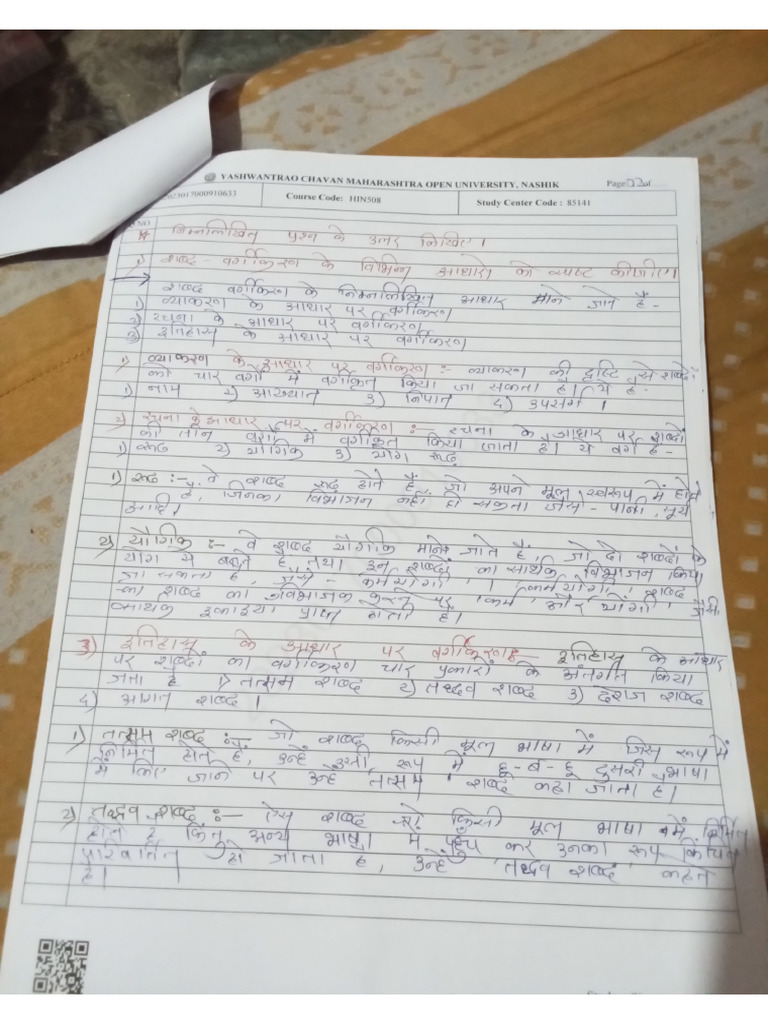 YASHWANTRAO CHAVAN MAHARASHTRA OPEN UNIVERSITY, NASHIK
Page of
2023017000910633 Course Code: HIN508 Study Center Code : 85141
निम्नलिखित प्रश्न के उत्तर लिखिए।
शब्द - वर्गीकरण के विभिन्न आधारों को स्पष्ट कीजीए।
शब्द वर्गीकरण के निम्नलिखित आधार माने जाते है -
1) व्याकरण के आधार पर वर्गीकरण
2) रचना के आधार पर वर्गीकरण
3) इतिहास के आधार पर वर्गीकरण
1) व्याकरण के आधार पर वर्गीकरण :- व्याकरण की दृष्टि से शब्दों
को चार वर्गो में वर्गीकृत किया जा सकता है। ये है -
1) नाम 2) आख्यात 3) निपात 4) उपसर्ग ।
2) रचना के आधार पर वर्गीकरण :- रचना के आधार पर शब्दों
को तीन वर्गो में वर्गीकृत किया जाता है। ये वर्ग है -
1) रूढ 2) यौगिक 3) योग रूढ
1) रूढ :- वे शब्द रूढ होते है, जो अपने मूल स्वरूप में होते
है, जिनका विभाजन नहीं हो सकता जैसे - पानी, सूर्य
आदि।
2) यौगिक :- वे शब्द यौगीक माने जाते है, जो दो शब्दों के
योग से बनते है तथा इन शब्दों का सार्थक विभाजन किया
जा सकता है, जैसे - कर्मयोगी । 'कर्मयोगी' शब्द
का शब्द का विभाजक करने पर 'कर्म' और 'योगी' जैसी
सार्थक इकाइया प्राप्त होती है।
3) इतिहास के आधार पर वर्गीकरण :- इतिहास के आधार
पर शब्दों का वर्गीकरण चार प्रकारों के अंतर्गत किया
जाता है 1) तत्सम शब्द 2) तद्भव शब्द 3) देशज शब्द
4) आगत शब्द ।
1) तत्सम शब्द :- जो शब्द किसी मूल भाषा में जिस रूप में
निर्मित होते है, उन्हें उसी रूप में हू-ब-हू दुसरी भाषा
में लिए जाने पर उन्हें 'तत्सम' शब्द कहा जाता है।
2) तद्भव शब्द :- ऐसे शब्द जो किसी मूल भाषा में निर्मित
होते है किंतु अन्य भाषा में पहुँच कर उनका रूप किंचित
परिवर्तित हो जाता है, उन्हें तद्भव शब्द कहते
है।